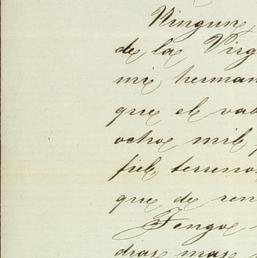 Ningun
de la Virg
mi herman
que el val
ochos mil p
fiel terreno
que de ren
Tengo
dias mas